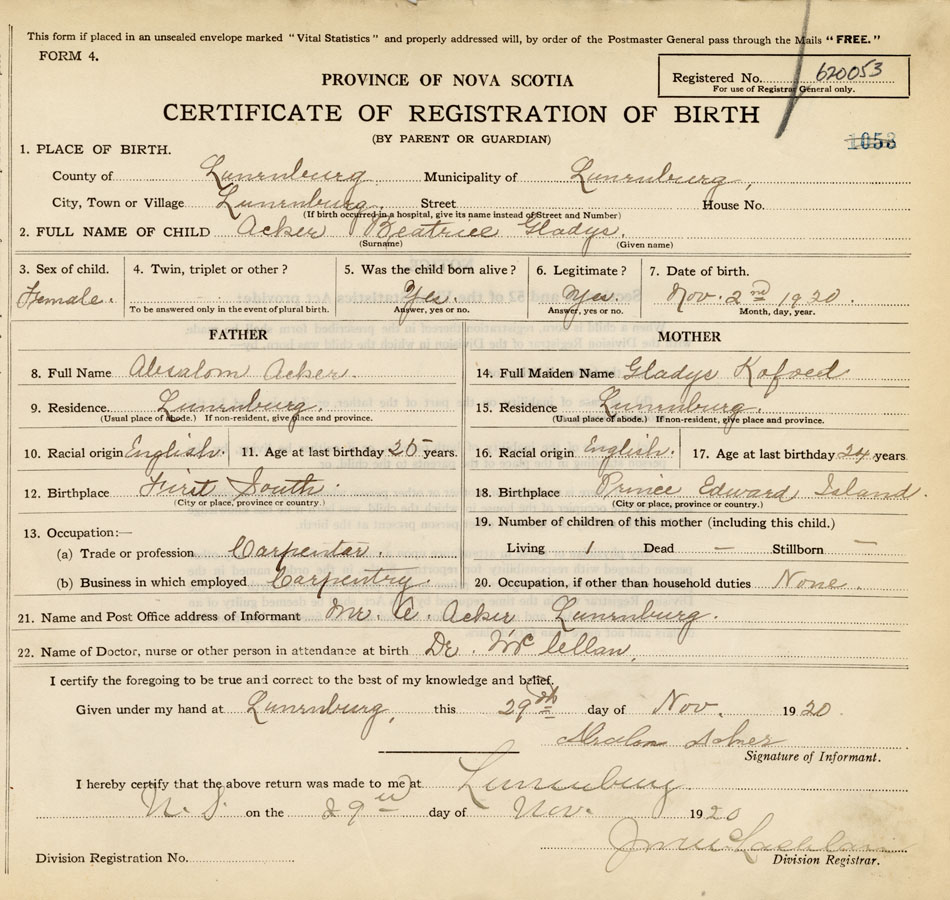 This form if placed in an unsealed envelope marked "Vital Statistics" and properly addressed will, by order of the Postmaster General pass through the Mails "FREE."
FORM 4.
Registered No. 620053
For use of Registrar General only.
PROVINCE OF NOVA SCOTIA
CERTIFICATE OF REGISTRATION OF BIRTH
(BY PARENT OR GUARDIAN)
1058
1. PLACE OF BIRTH.
County of Lunenburg Municipality of Lunenburg,
City, Town or Village Lunenburg, Street House No.
(If birth occurred in a hospital, give its name instead of Street and Number)
2. FULL NAME OF CHILD Acker Beatrice Gladys.
(Surname) (Given name)
3. Sex of child. 4. Twin, triplet or other? 5. Was the child born alive? 6. Legitimate? 7. Date of birth.
Female. Yes. Yes Nov. 2nd 1920.
To be answered only in the event of plural birth. Answer, yes or no. Answer, yes or no. Month, day, year.
FATHER
8. Full Name Absalom Acker.
9. Residence Lunenburg.
(Usual place of abode.) If non-resident, give place and province.
10. Racial origin English. 11. Age at last birthday 25 years.
12. Birthplace First South.
(City or place, province or country.)
13. Occupation:—
(a) Trade or profession Carpenter.
(b) Business in which employed Carpentry.
MOTHER
14. Full Maiden Name Gladys Kofoed
15. Residence Lunenburg.
(Usual place of abode.) If non-resident, give place and province.
16. Racial origin English. 17. Age at last birthday 24 years
18. Birthplace Prince Edward Island.
(City or place, province or country.)
19. Number of children of this mother (including this child.)
Living 1 Dead — Stillborn —
20. Occupation, if other than household duties None.
21. Name and Post Office address of Informant Mr. A. Acker Lunenburg.
22. Name of Doctor, nurse or other person in attendance at birth Dr. Mc lellan,
I certify the foregoing to be true and correct to the best of my knowledge and belief.
Given under my hand at Lunenburg, this 29th day of Nov. 1920.
Absalom Acker
Signature of Informant.
I hereby certify that the above return was made to me at Lunenburg
N.S. on the 29th day of Nov. 1920
Division Registrar.
Division Registration No.